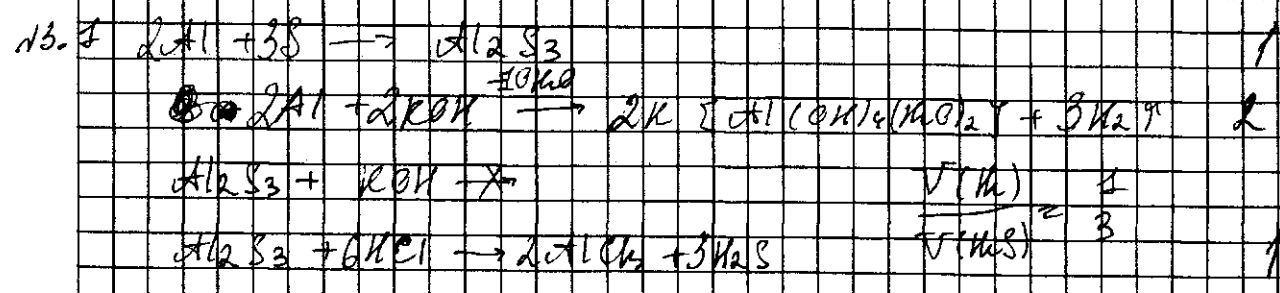 №3. 1 2Al + 3S → Al2S3 1
10H2O
2Al + 2KOH → 2K [Al(OH)4(H2O)2] + 3H2↑ 2
Al2S3 + KOH -X→ V(H2) / V(H2S) = 1 / 3
Al2S3 + 6HCl → 2AlCl3 + 3H2S 1